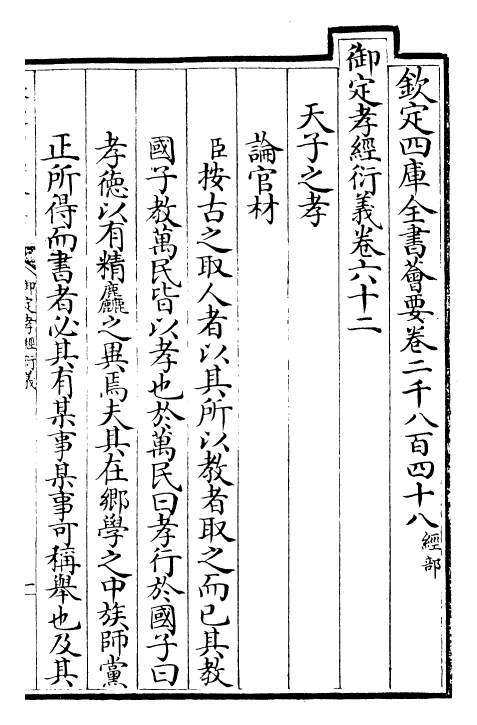 欽定四庫全書薈要卷二千八百四十八 經部
御定孝經衍義卷六十二
天子之孝
論官材
臣按古之取人者以其所以教者取之而已其教
國子教萬民皆以孝也於萬民曰孝行於國子曰
孝德以有精麤之異焉夫其在鄉學之中族師黨
正所得而書者必其有某事某事可稱舉也及其
御定孝經衍義